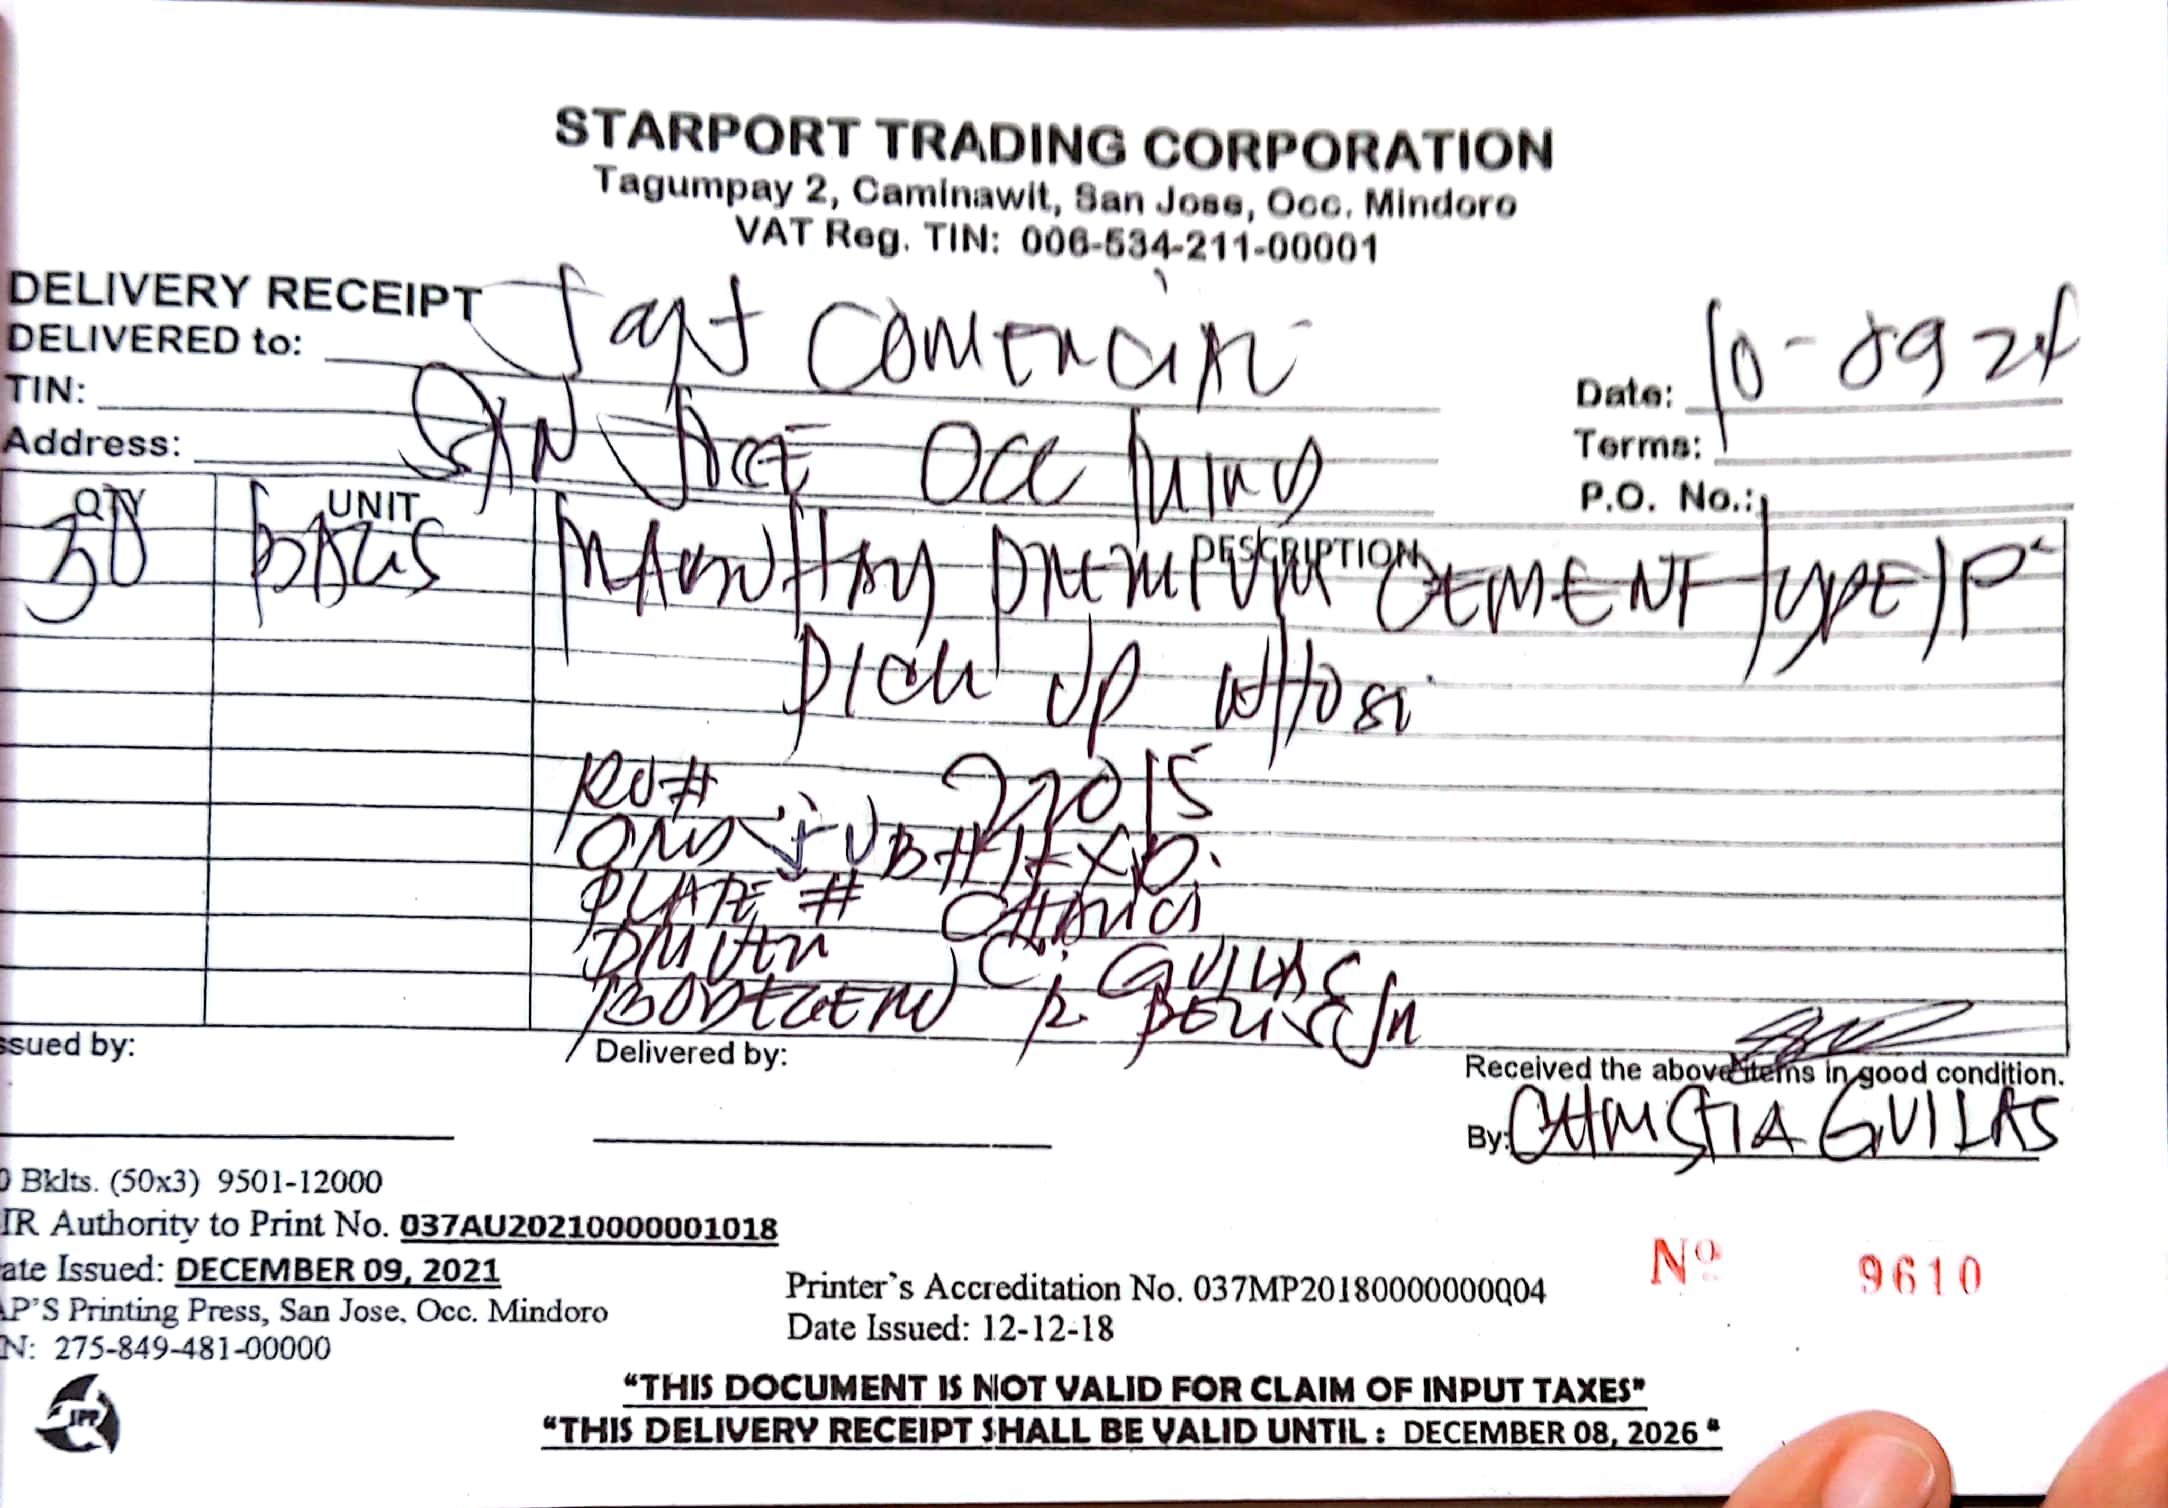 STARPORT TRADING CORPORATION
Tagumpay 2, Caminawit, San Jose, Occ. Mindoro
VAT Reg. TIN: 006-534-211-00001
DELIVERY RECEIPT
DELIVERED to:
TIN:
Address: SAN JOSE OCC
Date: 10-09 24
Terms:
P.O. No.:
QTY UNIT DESCRIPTION
30 BAGS CEMENT TYPE 1P
PICK UP
22015
PLATE #
C. GUILAS
ssued by:
Delivered by:
Received the above items in good condition.
By: CHRISTIA GUILAS
0 Bklts. (50x3) 9501-12000
IR Authority to Print No. 037AU20210000001018
ate Issued: DECEMBER 09, 2021
P'S Printing Press, San Jose, Occ. Mindoro
N: 275-849-481-00000
Printer's Accreditation No. 037MP20180000000004
Date Issued: 12-12-18
Nº 9610
JPP
"THIS DOCUMENT IS NOT VALID FOR CLAIM OF INPUT TAXES"
"THIS DELIVERY RECEIPT SHALL BE VALID UNTIL : DECEMBER 08, 2026 "